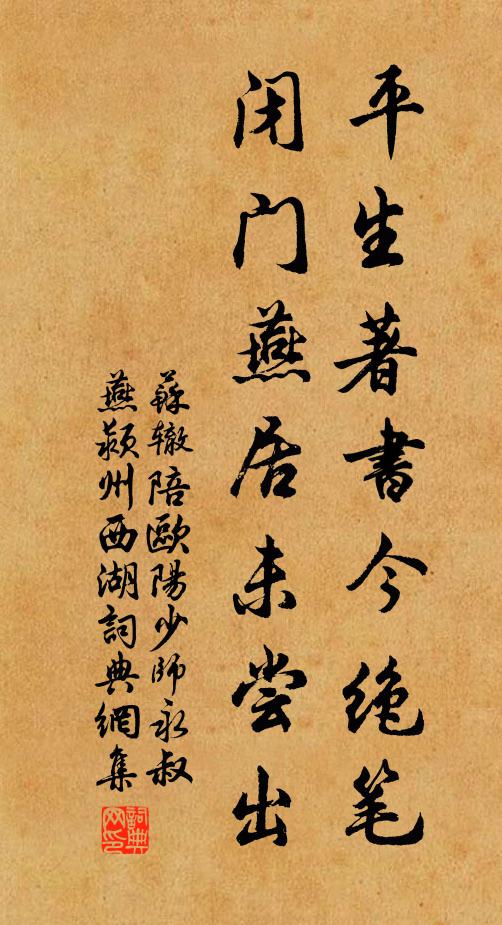 平生著書今绝笔
闭门燕居未尝出
蘇辙陪歐陽少師永叔
燕颍州西湖詞典網集
詞典网印